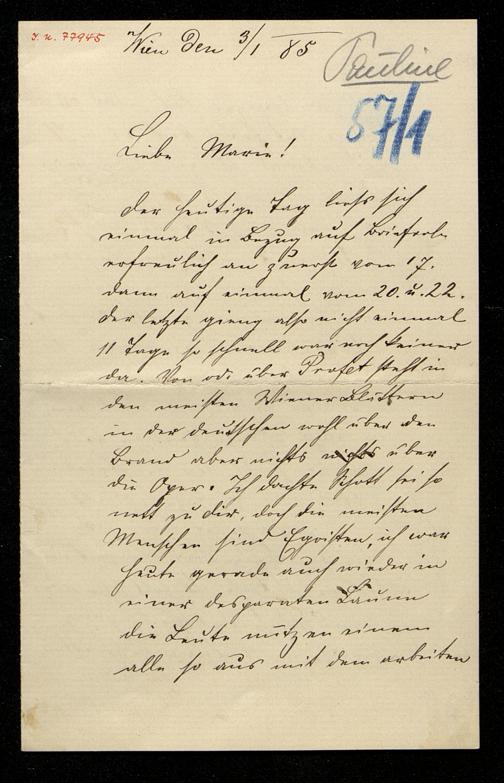 I. N. 77945
Wien den 3/1 85
Pauline
57/1
Liebe Marie!
der heutige Tag ließ sich
einmal in Bezug auf Briefrol
erfreulich an zuerst vom 17.
dann auf einmal vom 20. u. 22.
der letzte gieng also nicht einmal
11 Tage so schnell war noch keiner
da. Von odr über Profet steht in
den meisten Wiener Blättern
in der deutschen wohl über den
Brand aber nichts nichts über
die Oper. Ich dachte Schott sei so
nett zu dir, doch die meisten
Menschen sind Egoisten, ich war
heute gerade auch wieder in
einer desparaten Laune
die Leute nützen einem
alle so aus mit dem arbeiten